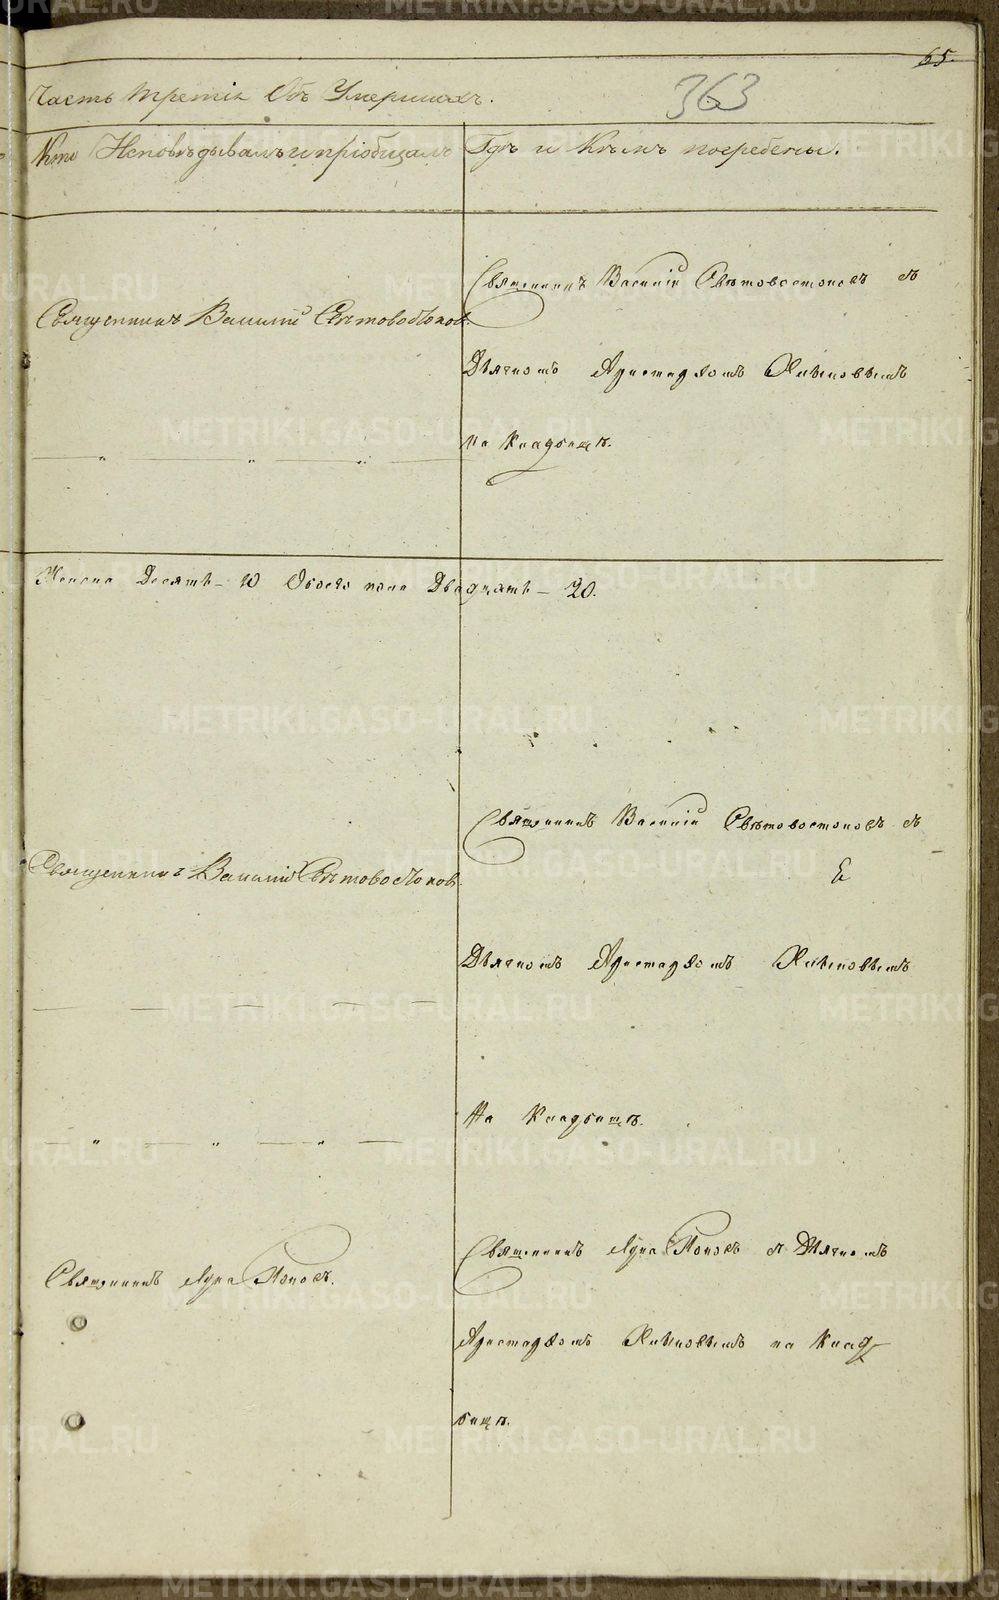 65.
363
Часть третія Объ Умершихъ.
Кто Исповѣдывалъ и пріобщалъ
Гдѣ и Кѣмъ погребены.
Священникъ Василій Свѣтовостоковъ съ
Священникъ Василій Свѣтовостоковъ.
Дьячкомъ Аристархомъ
на Кладбищѣ.
Женска Десять – 10 Обоего пола Двадцать – 20.
Священникъ Василій Свѣтовостоковъ съ
Священникъ Василій Свѣтовостоковъ.
Дьячкомъ Аристархомъ
На Кладбищѣ.
Священникъ Лука Поповъ съ Дьячкомъ
Священникъ Лука Поповъ.
Аристархомъ на Клад
бищѣ.
METRIKI.GASO-URAL.RU